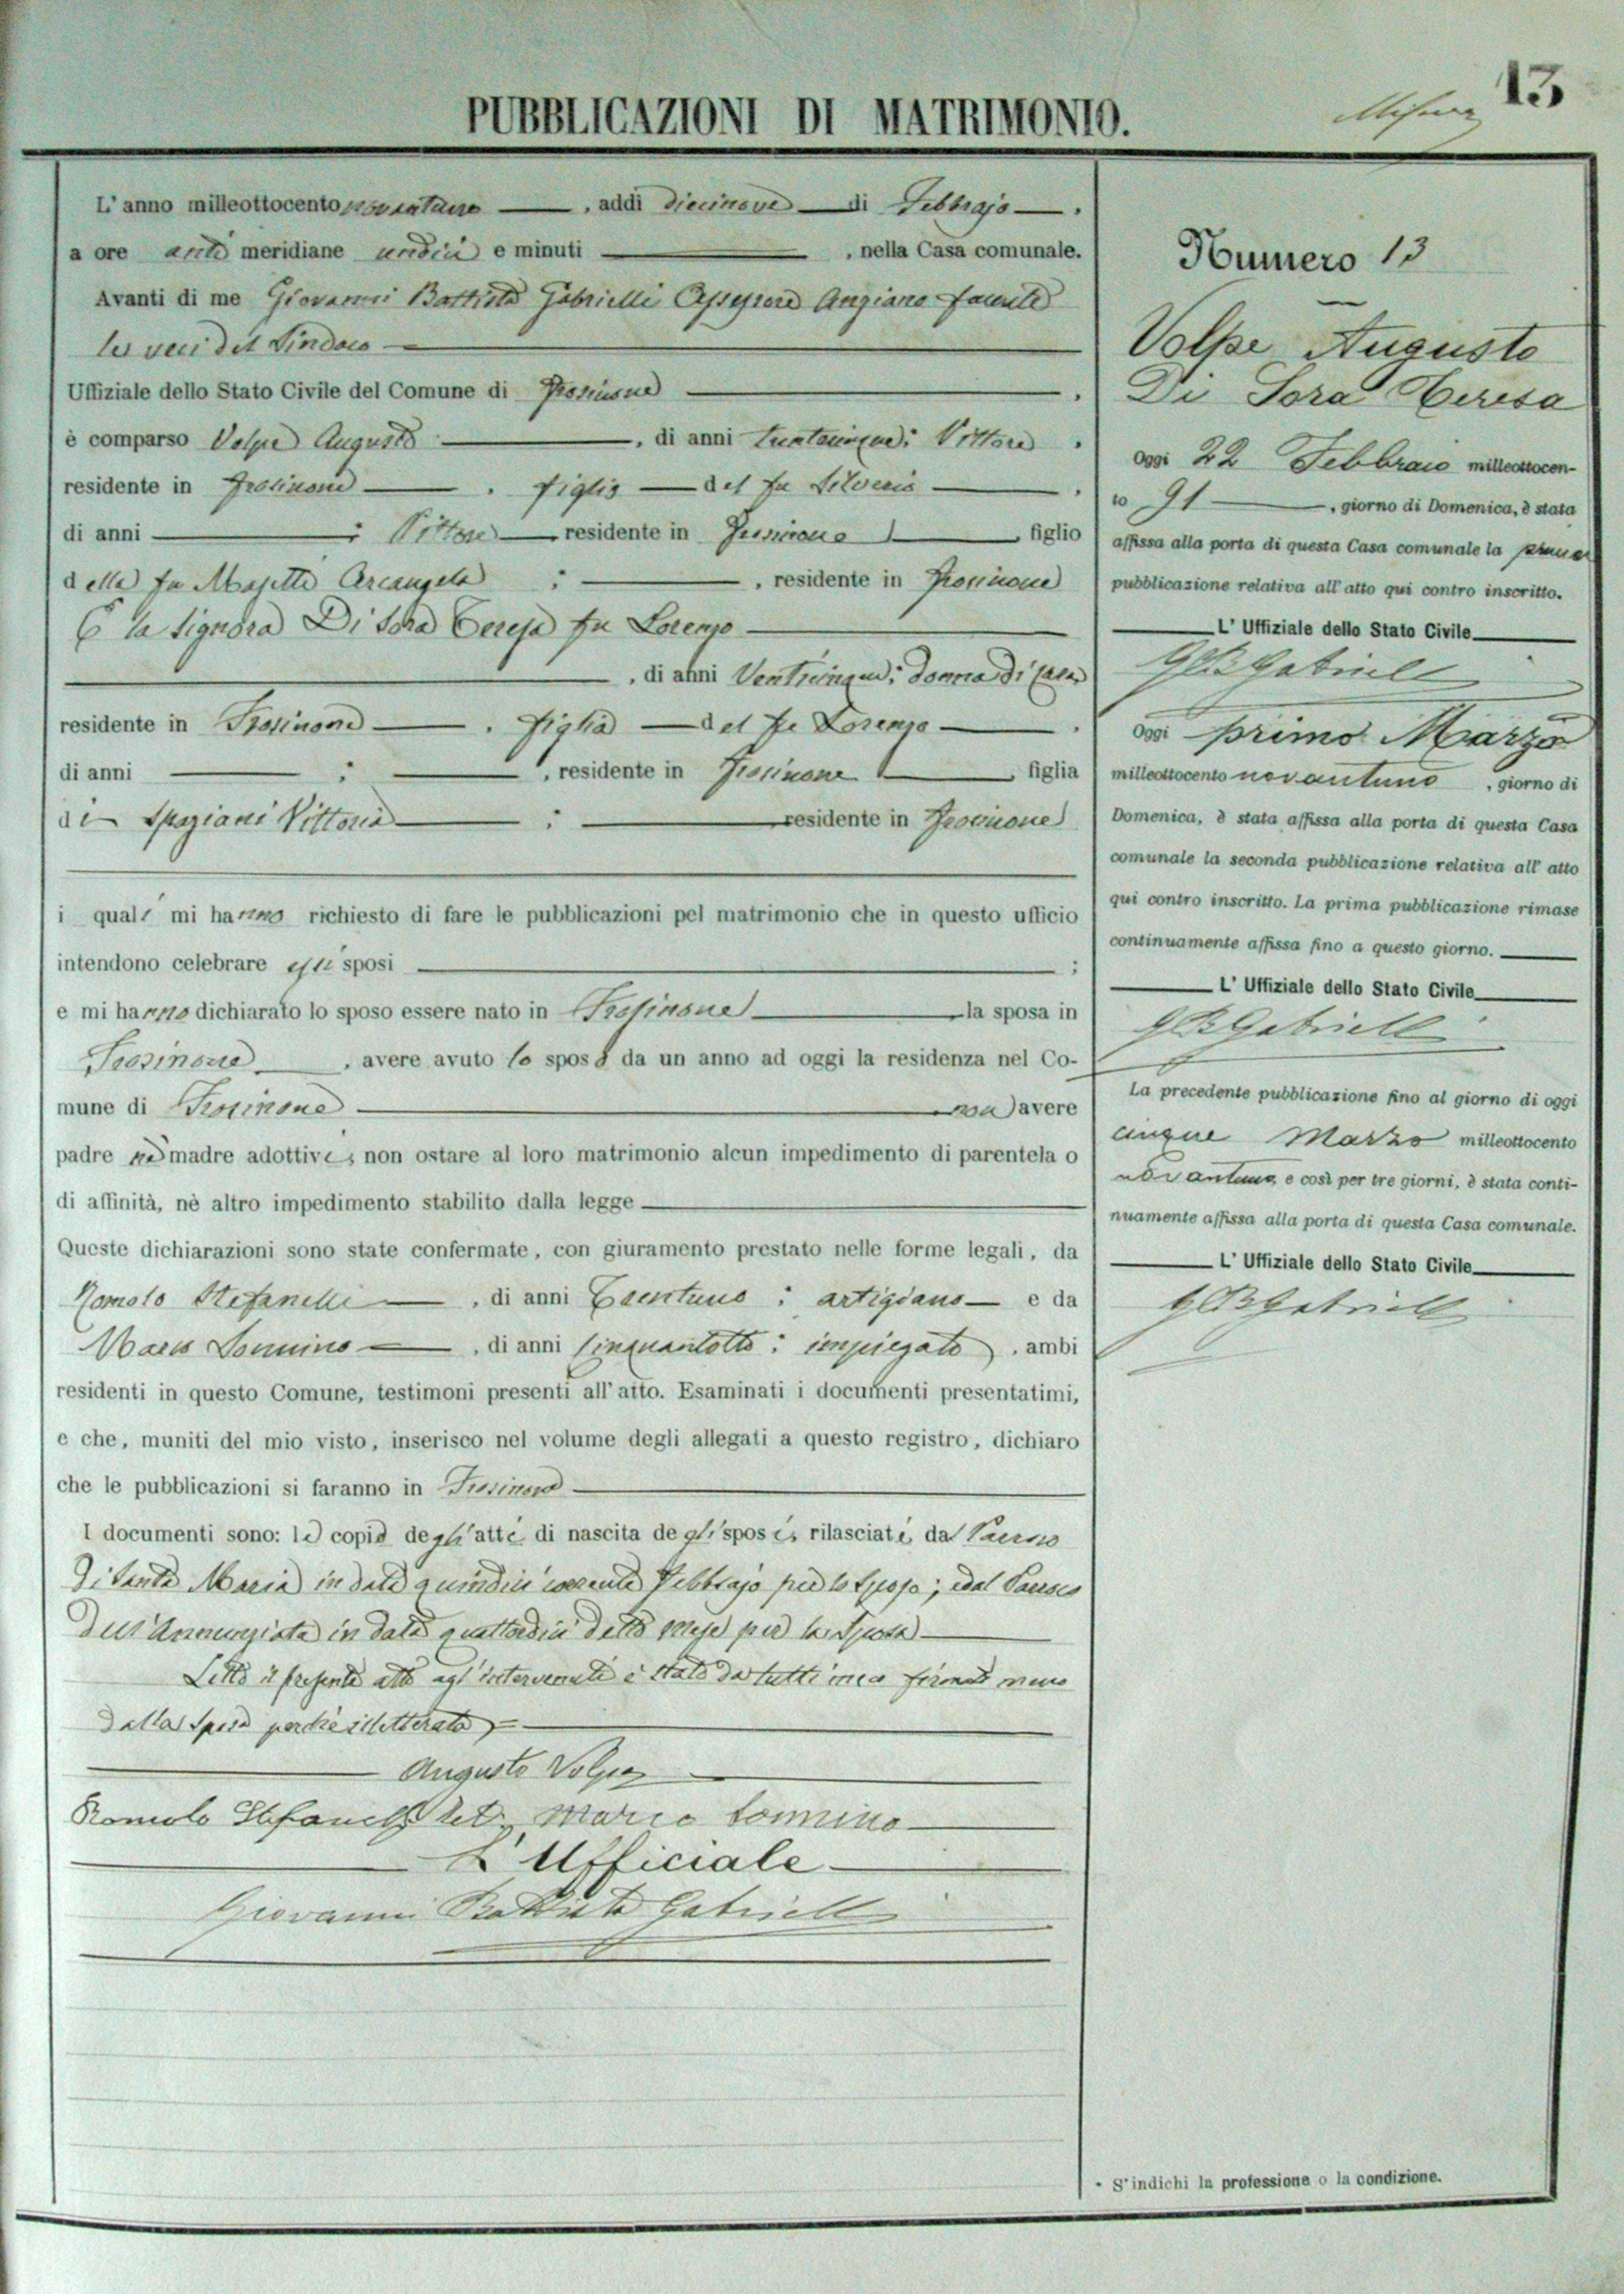 13
PUBBLICAZIONI DI MATRIMONIO.
L'anno milleottocento novantuno, addì diecinove di Febbrajo.
a ore anti meridiane undici e minuti, nella Casa comunale.
Avanti di me Giovanni Battista Gabrielli Assessore Anziano facente
le veci del Sindaco
Uffiziale dello Stato Civile del Comune di Frosinone.
è comparso Volpe Augusto, di anni trentacinque: Vittore.
residente in Frosinone. figlio del fu Silverio.
di anni : Vittore residente in Frosinone, figlio
della fu Masetti Arcangela : , residente in Frosinone
E la Signora Di Sora Teresa fu Lorenzo
, di anni Venticinque: donna di casa
residente in Frosinone. figlia del fu Lorenzo.
di anni : , residente in Frosinone, figlia
di Spaziani Vittoria : residente in Frosinone
i quali mi hanno richiesto di fare le pubblicazioni pel matrimonio che in questo ufficio
intendono celebrare essi sposi ;
e mi hanno dichiarato lo sposo essere nato in Frosinone la sposa in
Frosinone, avere avuto lo sposo da un anno ad oggi la residenza nel Co-
mune di Frosinone non avere
padre ne madre adottivi, non ostare al loro matrimonio alcun impedimento di parentela o
di affinità, nè altro impedimento stabilito dalla legge
Queste dichiarazioni sono state confermate, con giuramento prestato nelle forme legali, da
Romolo Stefanelli, di anni Trentuno : artigiano e da
Mario Tommino, di anni Cinquantotto : impiegato, ambi
residenti in questo Comune, testimoni presenti all'atto. Esaminati i documenti presentatimi,
e che, muniti del mio visto, inserisco nel volume degli allegati a questo registro, dichiaro
che le pubblicazioni si faranno in Frosinone
I documenti sono: le copie degli atti di nascita degli sposi, rilasciati, dal Parroco
Di Santa Maria in data quindici corrente Febbrajo per lo Sposo; e dal Parroco
Dell'Annunziata in data quattordici detto mese per la Sposa
Letto il presente atto agl'intervenuti è stato da tutti meco firmato meno
Dalla Sposa perchè illetterata =
Augusto Volpe
Romolo Stefanelli Mario Tommino
L'Ufficiale
Giovanni Battista Gabrielli
Numero 13
Volpe Augusto
Di Sora Teresa
Oggi 22 Febbraio milleottocen-
to 91, giorno di Domenica, è stata
affissa alla porta di questa Casa comunale la prima
pubblicazione relativa all'atto qui contro inscritto.
L'Uffiziale dello Stato Civile
GBGabrielli
Oggi primo Marzo
milleottocento novantuno, giorno di
Domenica, è stata affissa alla porta di questa Casa
comunale la seconda pubblicazione relativa all'atto
qui contro inscritto. La prima pubblicazione rimase
continuamente affissa fino a questo giorno.
L'Uffiziale dello Stato Civile
GBGabrielli
La precedente pubblicazione fino al giorno di oggi
cinque Marzo milleottocento
novantuno, e così per tre giorni, è stata conti-
nuamente affissa alla porta di questa Casa comunale.
L'Uffiziale dello Stato Civile
GBGabrielli
- S'indichi la professione o la condizione.